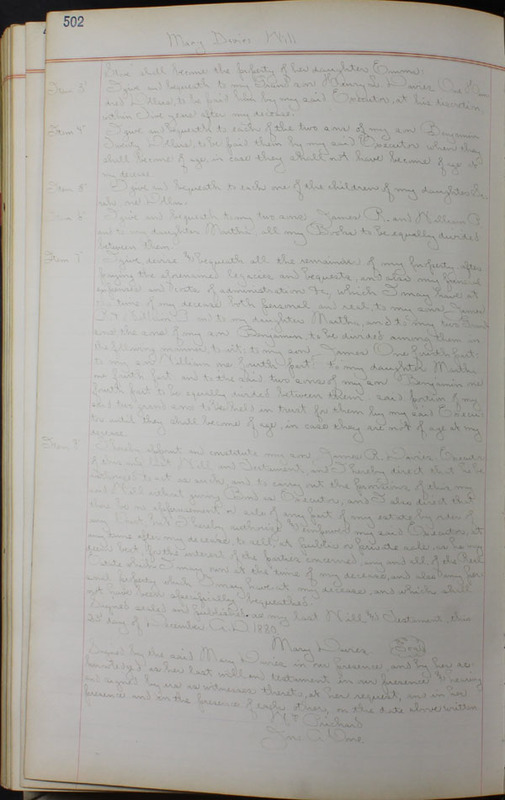 502
Mary Davies Will
shall become the property of her daughter Emma.
Item 3 I give and bequeath to my Grand son Henry Davies One
Dollars, to be paid him by my said Executor, at his discretion,
within five years after my decease.
Item 4 I give and bequeath to each of the two sons of my son Benjamin
Dollars, to be paid them by my said Executor when they
shall become of age, in case they shall not have become of age at
my decease.
Item 5 I give and bequeath to each one of the children of my daughter
Dollars.
Item 6 I give and bequeath to my two sons James R. and William B.
and to my daughter Martha, all my Books to be equally divided
between them.
Item 7 I give, devise & bequeath all the remainder of my property after
paying the aforenamed legacies and bequests, and also my funeral
expenses and costs of administration &c, which I may have at
time of my decease both personal and real, to my sons James
R & William B and to my daughter Martha, and to my two Grand
sons the sons of my son Benjamin, to be divided among them in
the following manner, to wit; to my son James One fourth part;
to my son William one fourth part; to my daughter Martha
one fourth part, and to the said two sons of my son Benjamin one
fourth part to be equally divided between them; said portion of my
said two grand sons to be held in trust for them by my said Execu-
tor until they shall become of age, in case they are not of age at my
decease.
Item 8 I hereby appoint and constitute my son James R. Davies Executor
of this my last Will and Testament, and I hereby direct that he be
allowed to act as such, and to carry out the provisions of this my
Will without giving bond as Executor, and I also direct that
there be no appraisement or sale of any part of my estate by order of
any Court, but I hereby authorize & empower my said Executor, at
any time after my decease to sell, at public or private sale, as he may
best, for the interest of the parties concerned, any and all of the Real
Estate which I may own at the time of my decease, and also any per-
sonal property which I may have at my decease, and which shall
not have been specifically bequeathed.
Signed sealed and published as my last Will & Testament, this
day of December A.D. 1880
Mary Davies (Seal)
Signed by the said Mary Davies in our presence, and by her ac-
knowledged as her last will and testament in our presence & hearing
and signed by us as witnesses thereto, at her request, and in her
presence and in the presence of each other, on the date above written